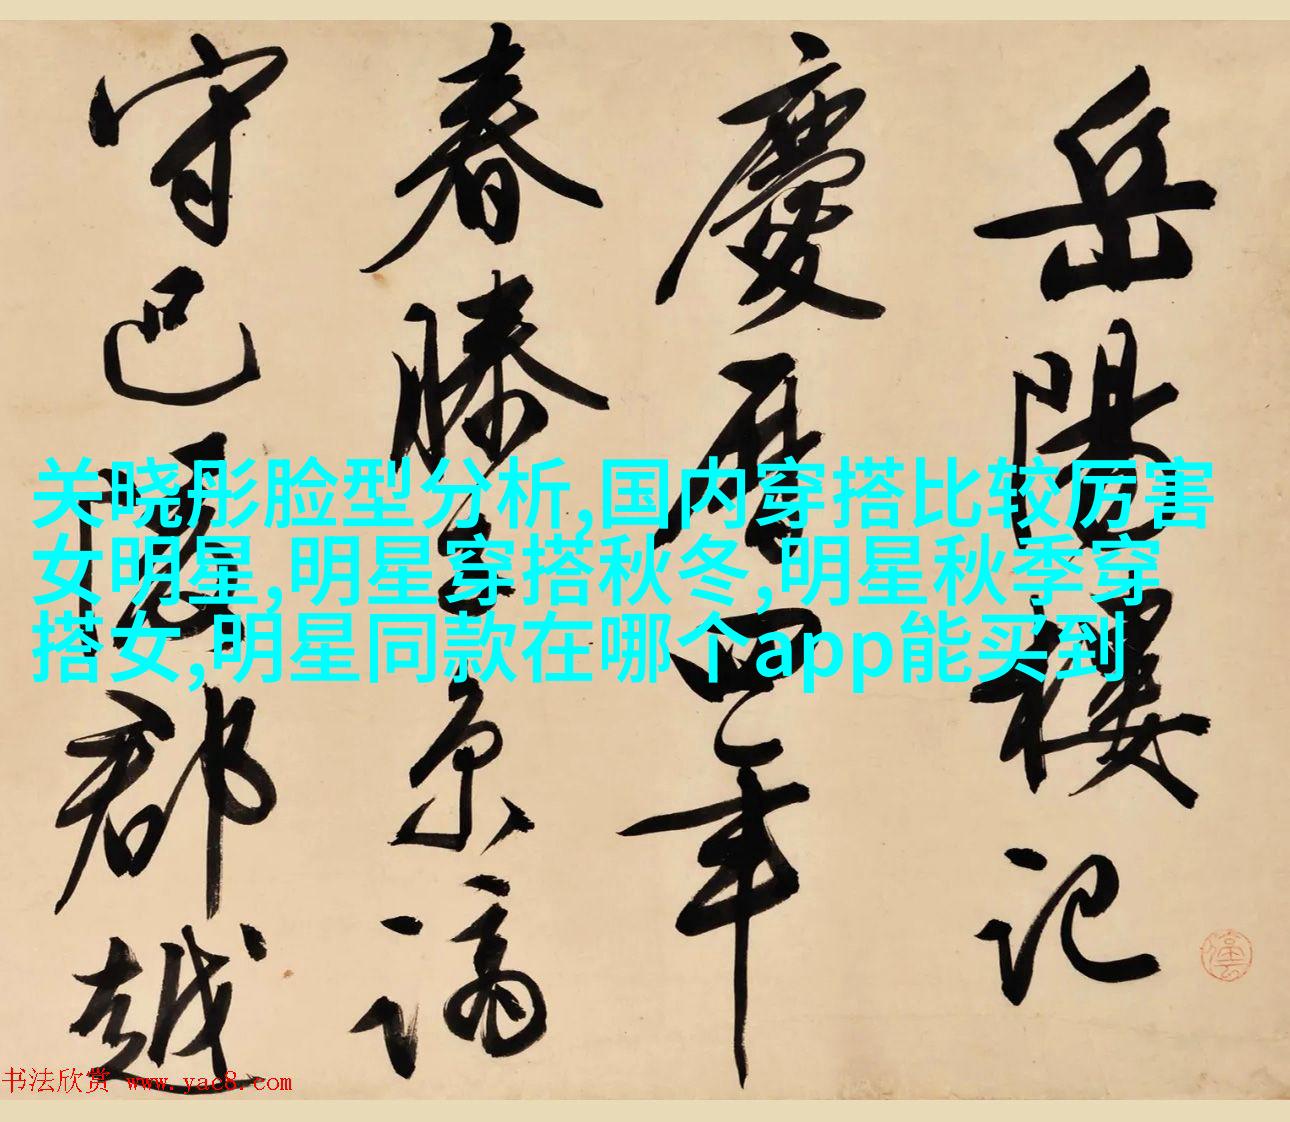 岳陽樓記
慶曆四年
春滕子京謫
守巴陵郡越
关晓彤脸型分析,国内穿搭比较厉害
女明星,明星穿搭秋冬,明星秋季穿
搭女,明星同款在哪个app能买到
书法欣赏 www.yac8.com